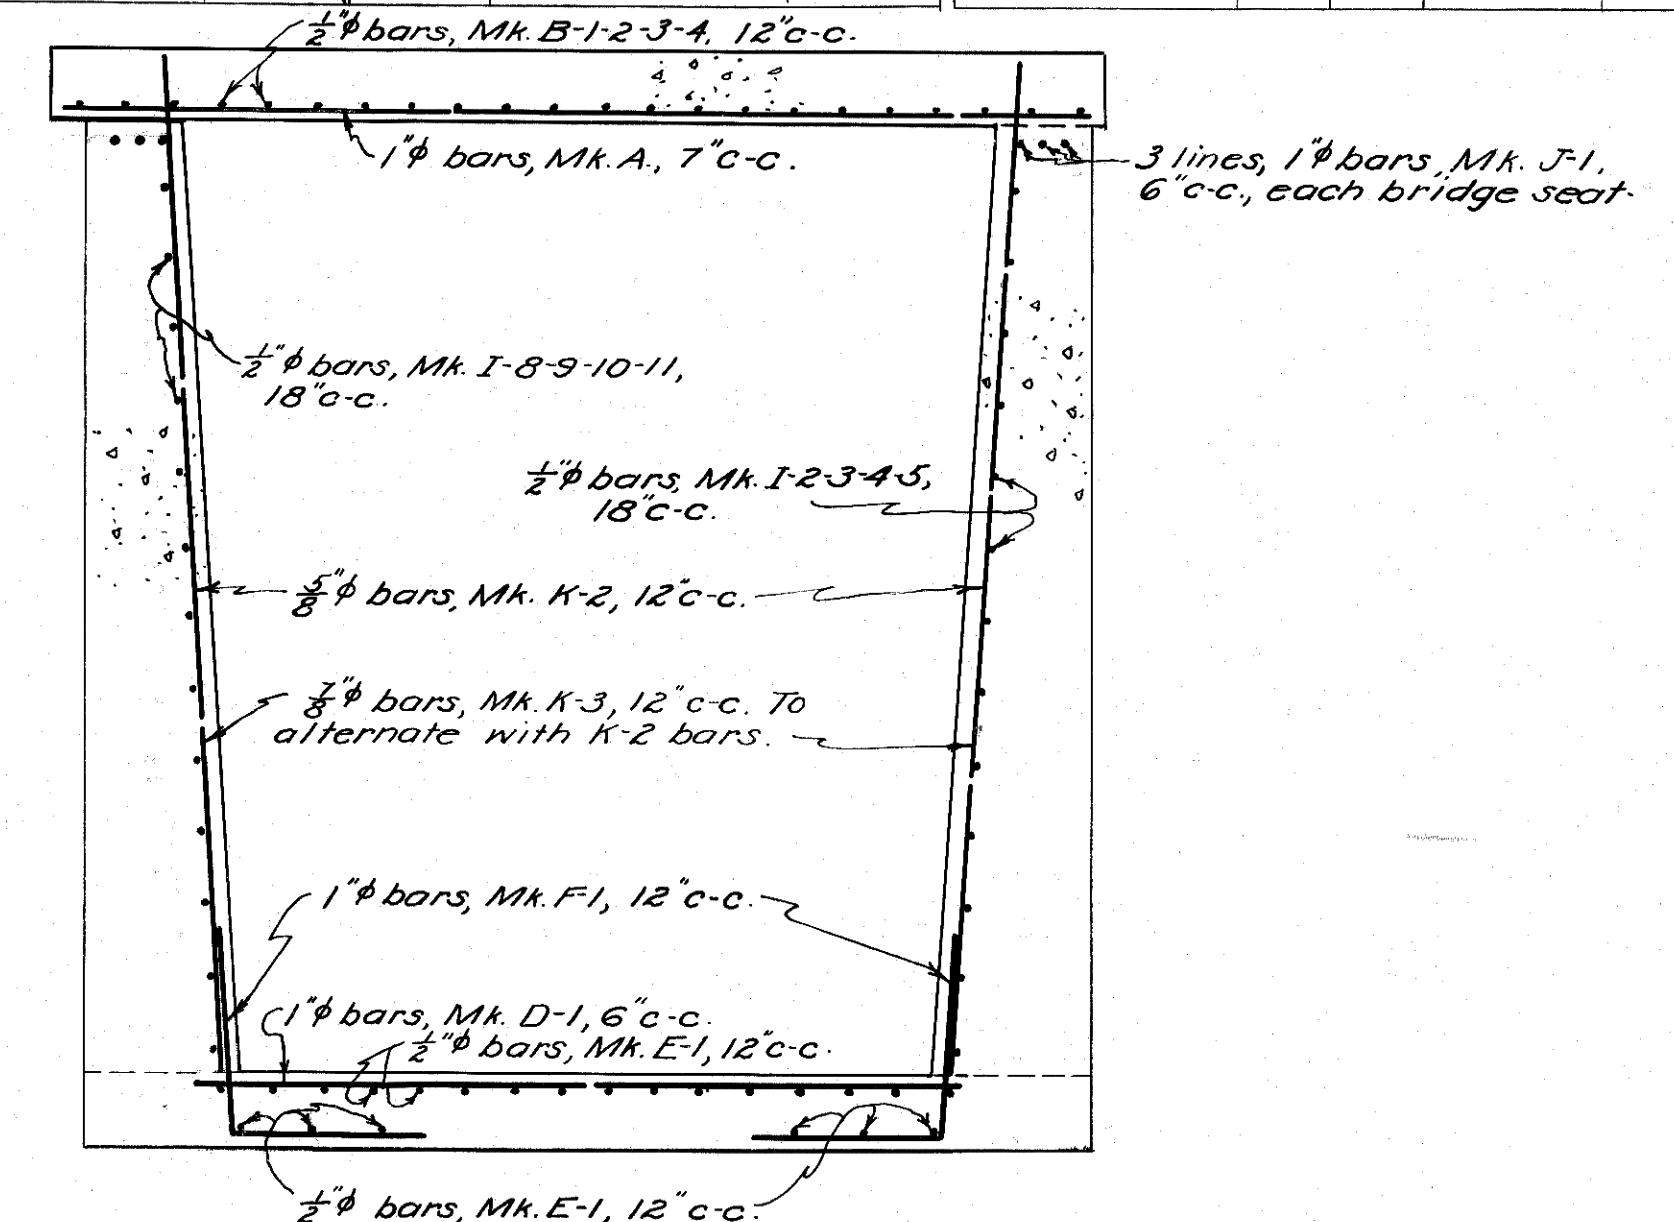 1/2"φ bars, Mk. B-1-2-3-4, 12"c-c.
1"φ bars, Mk. A., 7"c-c.
3 lines, 1"φ bars, Mk. J-1,
6"c-c., each bridge seat.
1/2"φ bars, Mk. I-8-9-10-11,
18"c-c.
1/2"φ bars, Mk. I-2-3-4-5,
18"c-c.
5/8"φ bars, Mk. K-2, 12"c-c.
7/8"φ bars, Mk. K-3, 12"c-c. To
alternate with K-2 bars.
1"φ bars, Mk. F-1, 12"c-c.
1"φ bars, Mk. D-1, 6"c-c.
1/2"φ bars, Mk. E-1, 12"c-c.
1/2"φ bars, Mk. E-1, 12"c-c.